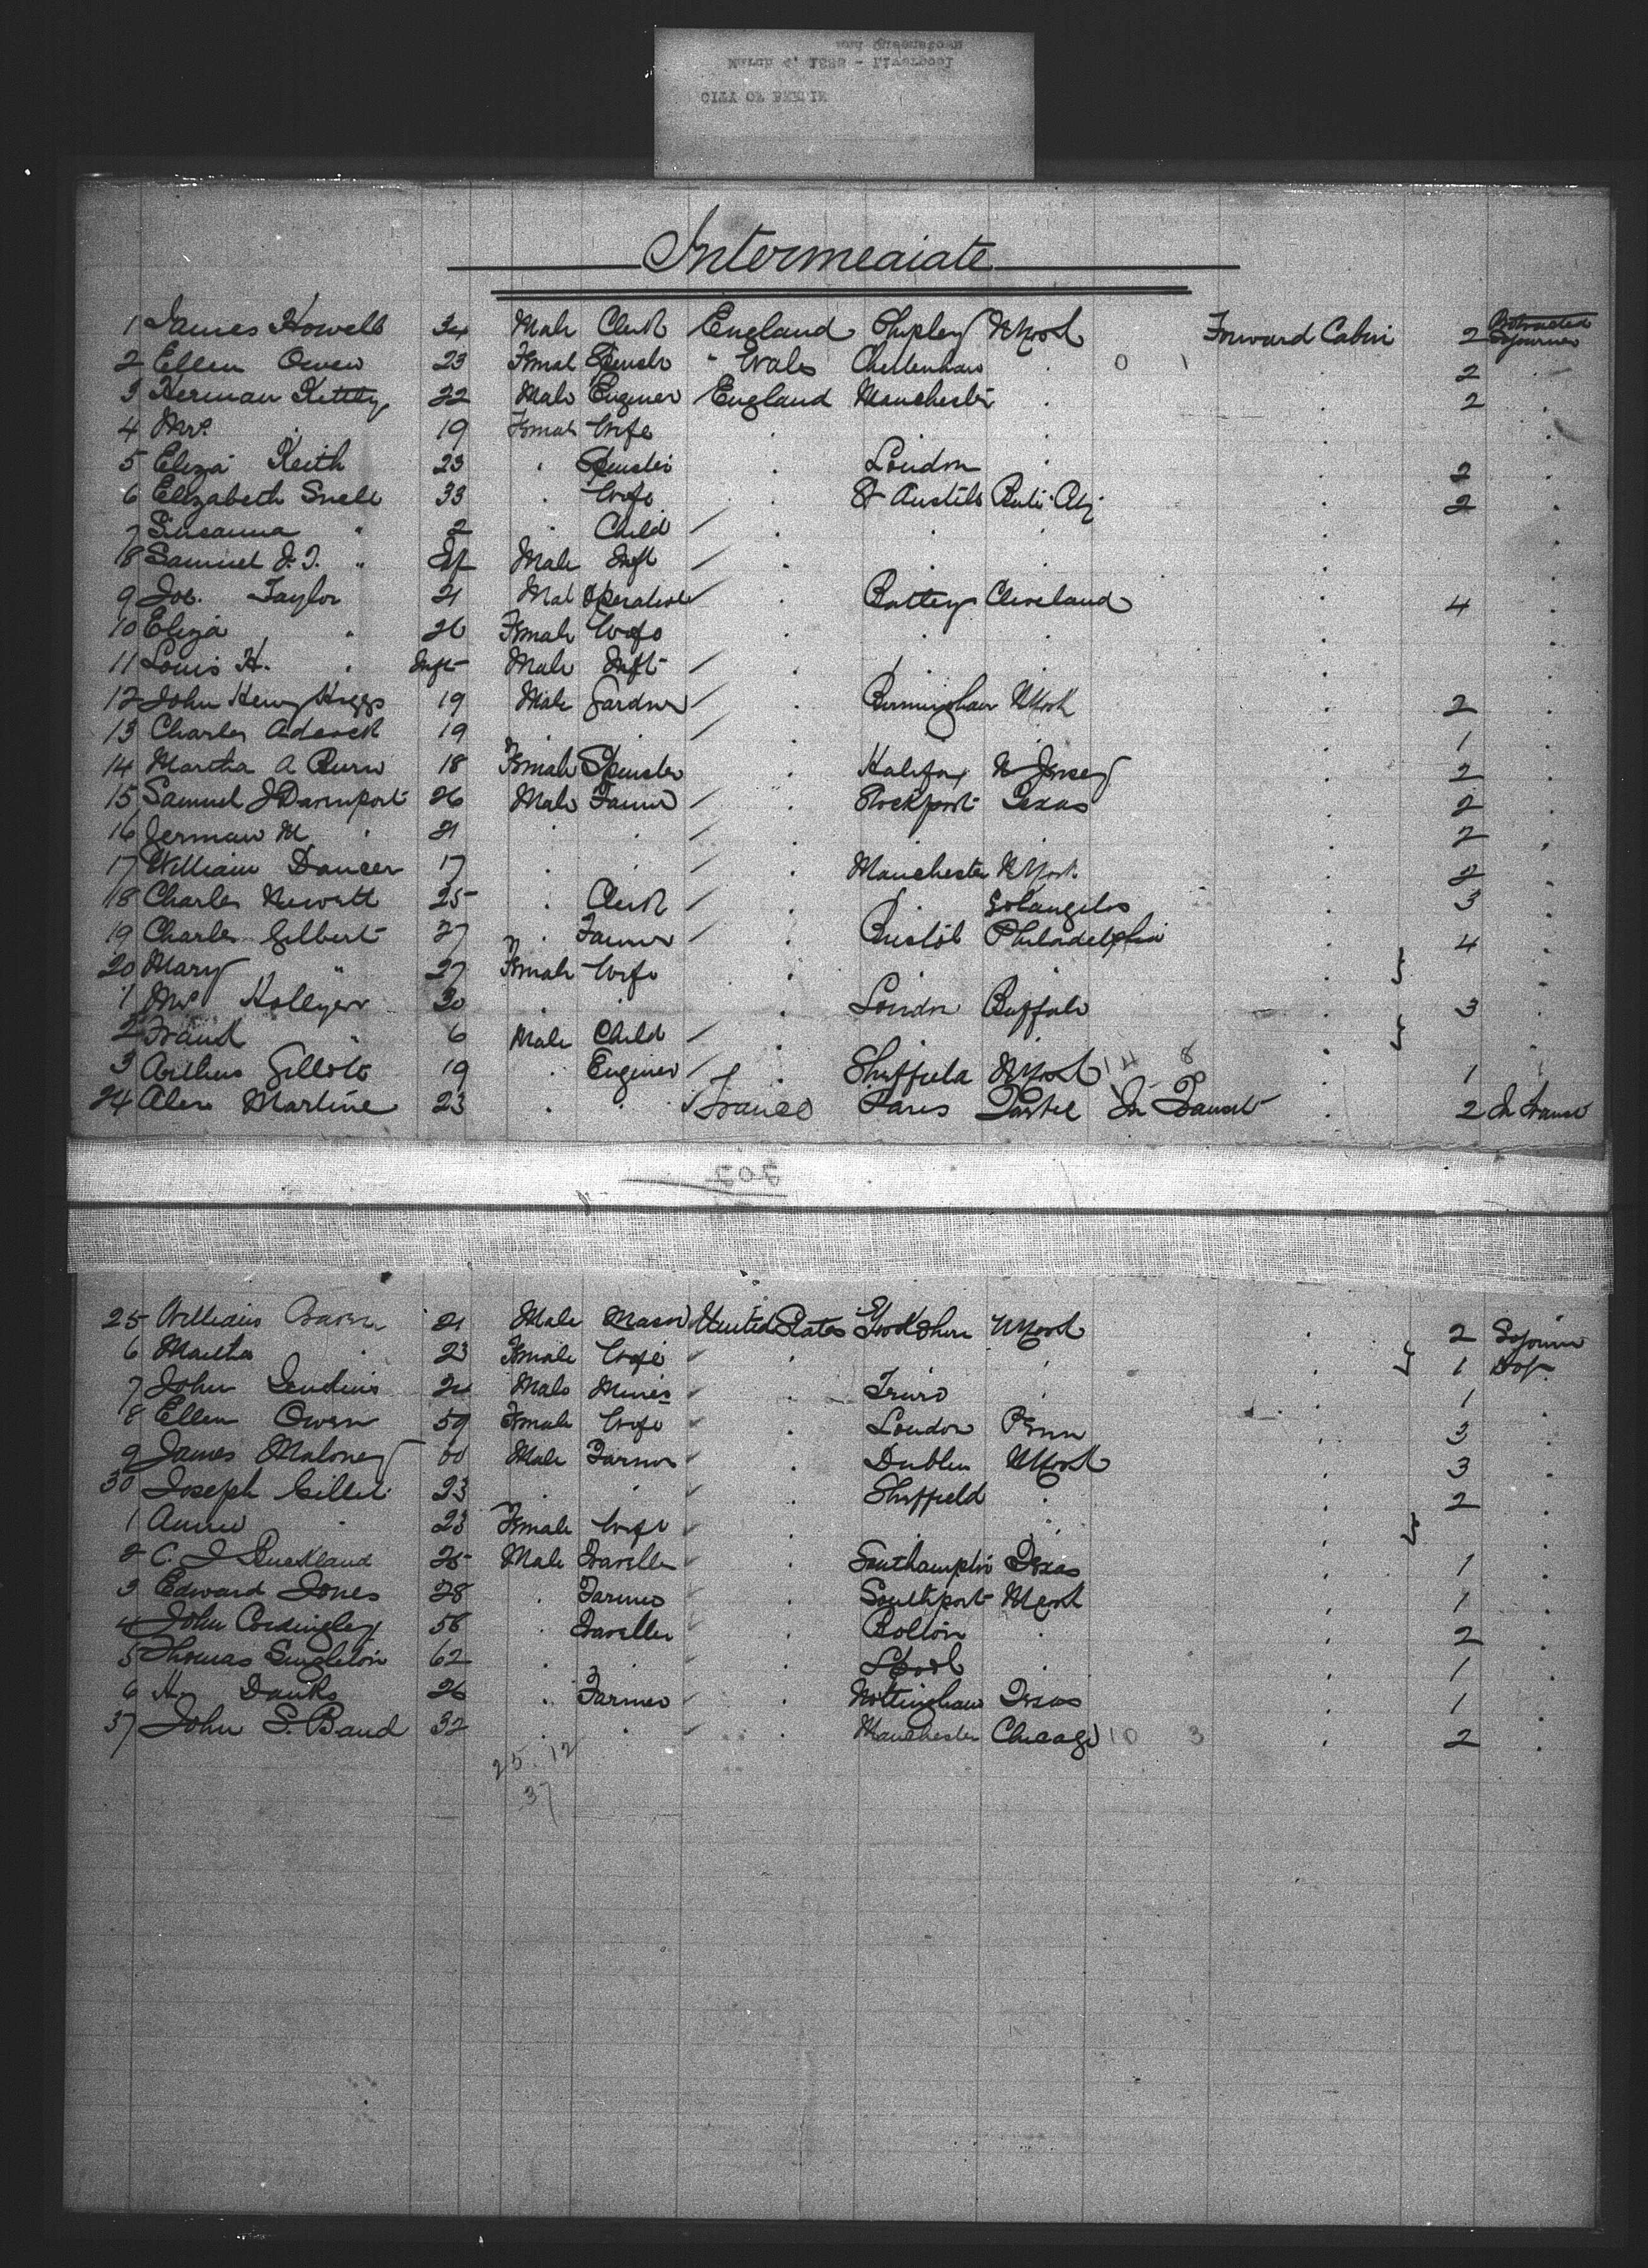 CITY OF BERLIN
March 5, 1888 - Liverpool
and Queenstown
Intermediate
1 James Howell 34 Male Clerk England Shipley N York Forward Cabin 2 Protracted Sojourn
2 Ellen Owen 23 Femal Spinstr " Wales Cheltenham . 0 1 2
3 Herman Kitty 22 Male Enginer England Manchester . 2 .
4 Mrs . 19 Femal Wife . . .
5 Eliza Keith 23 . Spinster . London . 2 .
6 Elizabeth Snell 33 . Wife . St Austile 2 .
7 Susanna " 2 . Child . . .
8 Samuel J. T. " Inf Male Inft . .
9 Jos. Taylor 21 Mal Operative . Battery Cleveland 4 .
10 Eliza " 26 Female Wife . . .
11 Louis H. . Inft Male Inft . . .
12 John Henry Higgs 19 Male Gardner . Birmingham N York 2 .
13 Charles Adcock 19 . . . 1 .
14 Martha A Burn 18 Female Spinster . Halifax N Jersey 2 .
15 Samuel J Davenport 26 Male Farmer . Stockport Texas 2 .
16 Jerman M . 21 . . . 2 .
17 William Dancer 17 . . . Manchester N York 2 .
18 Charles Hewett 25 . Clerk . . Solangelos 3 .
19 Charles Gilbert 27 . Farmer . Bristol Philadelphia 4 .
20 Mary " 27 Female Wife . .
1 Mrs Hollyer 30 . . . London Buffalo 3 .
2 Frank " 6 Male Child . .
3 Arthur Gillott 19 . Enginer . Sheffield N York 14 8 1
24 Alex Martine 23 . . France Paris In Transit 2 In Transt
202
25 William 21 Male Mason United States Yorkshire N York 2 Sojourn
6 Martha . 23 Female Wife . . . 1 Stop
7 John Jenkins 24 Male Miner . Truro . 1
8 Ellen Owen 59 Female Wife . London Penn 3 .
9 James Maloney 60 Male Farmer . Dublin N York 3 .
30 Joseph Gillet 23 . . . Sheffield . 2 .
1 Annie . 23 Female Wife . . .
2 C. J Buckland 25 Male Traveller . Southampton Texas 1 .
3 Edward Jones 28 . Farmer . Southport N York 1 .
4 John Cordingley 56 . Traveller . Bolton . 2 .
5 Thomas Singleton 62 . . . Lpool . 1 .
6 Hy Danks 26 . Farmer . Nottingham Texas 1 .
37 John S. Band 32 . . . Manchester Chicago 10 3 2 .
25. 12
37